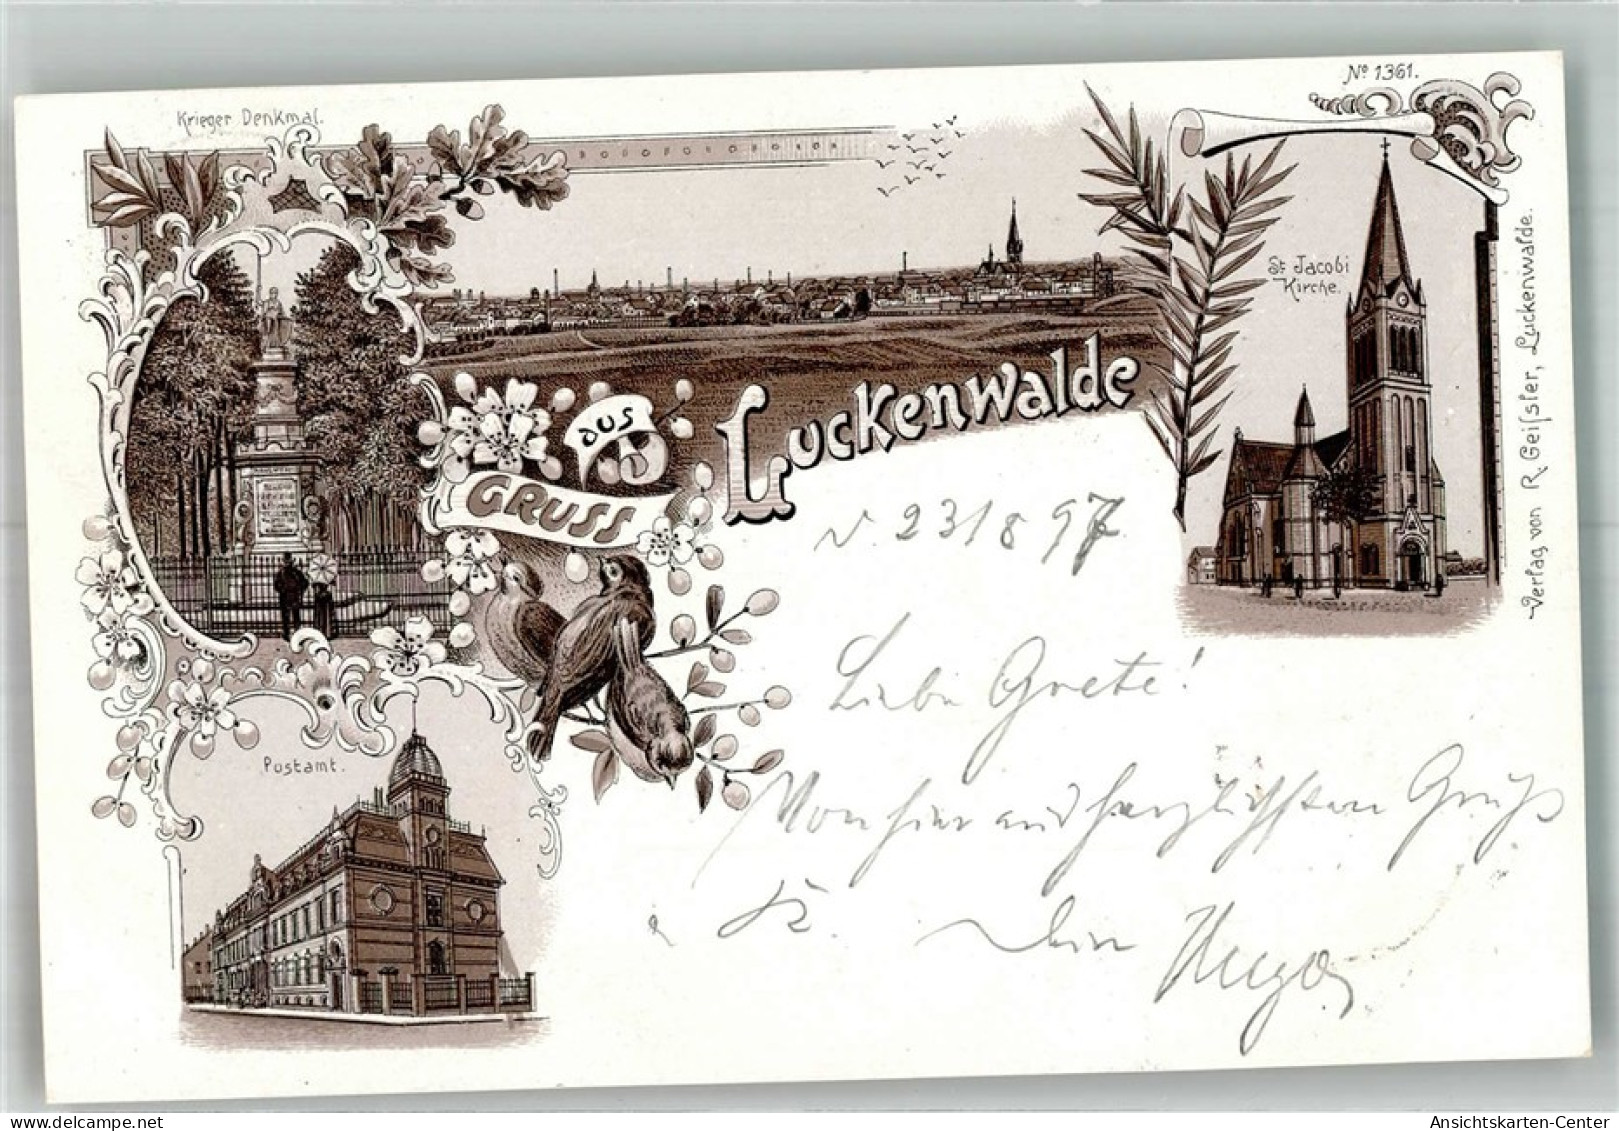 Krieger Denkmal.
No 1361.
St Jacobi
Kirche.
GRUSS
aus
Luckenwalde
Verlag von R. Geiſsler, Luckenwalde.
Postamt.
23/8 97
Liebe Grete!
Von hier aus herzlichsten Gruß
Dein Hugo
Ansichtskarten-Center